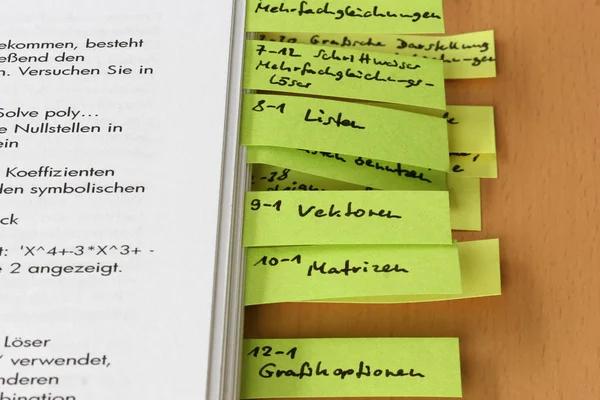 ekommen, besteht
eßend den
n. Versuchen Sie in
Solve poly...
e Nullstellen in
ein
Koeffizienten
den symbolischen
ck
t: 'X^4+-3*X^3+ -
e 2 angezeigt.
Löser
verwendet,
nderen
bination
Mehrfachgleichungen
Grafische Darstellung
7-12 Schrittweiser
Mehrfachgleichungs-
Löser
8-1 Listen
Listen benutzen
9-1 Vektoren
10-1 Matrizen
12-1
Grafikoptionen